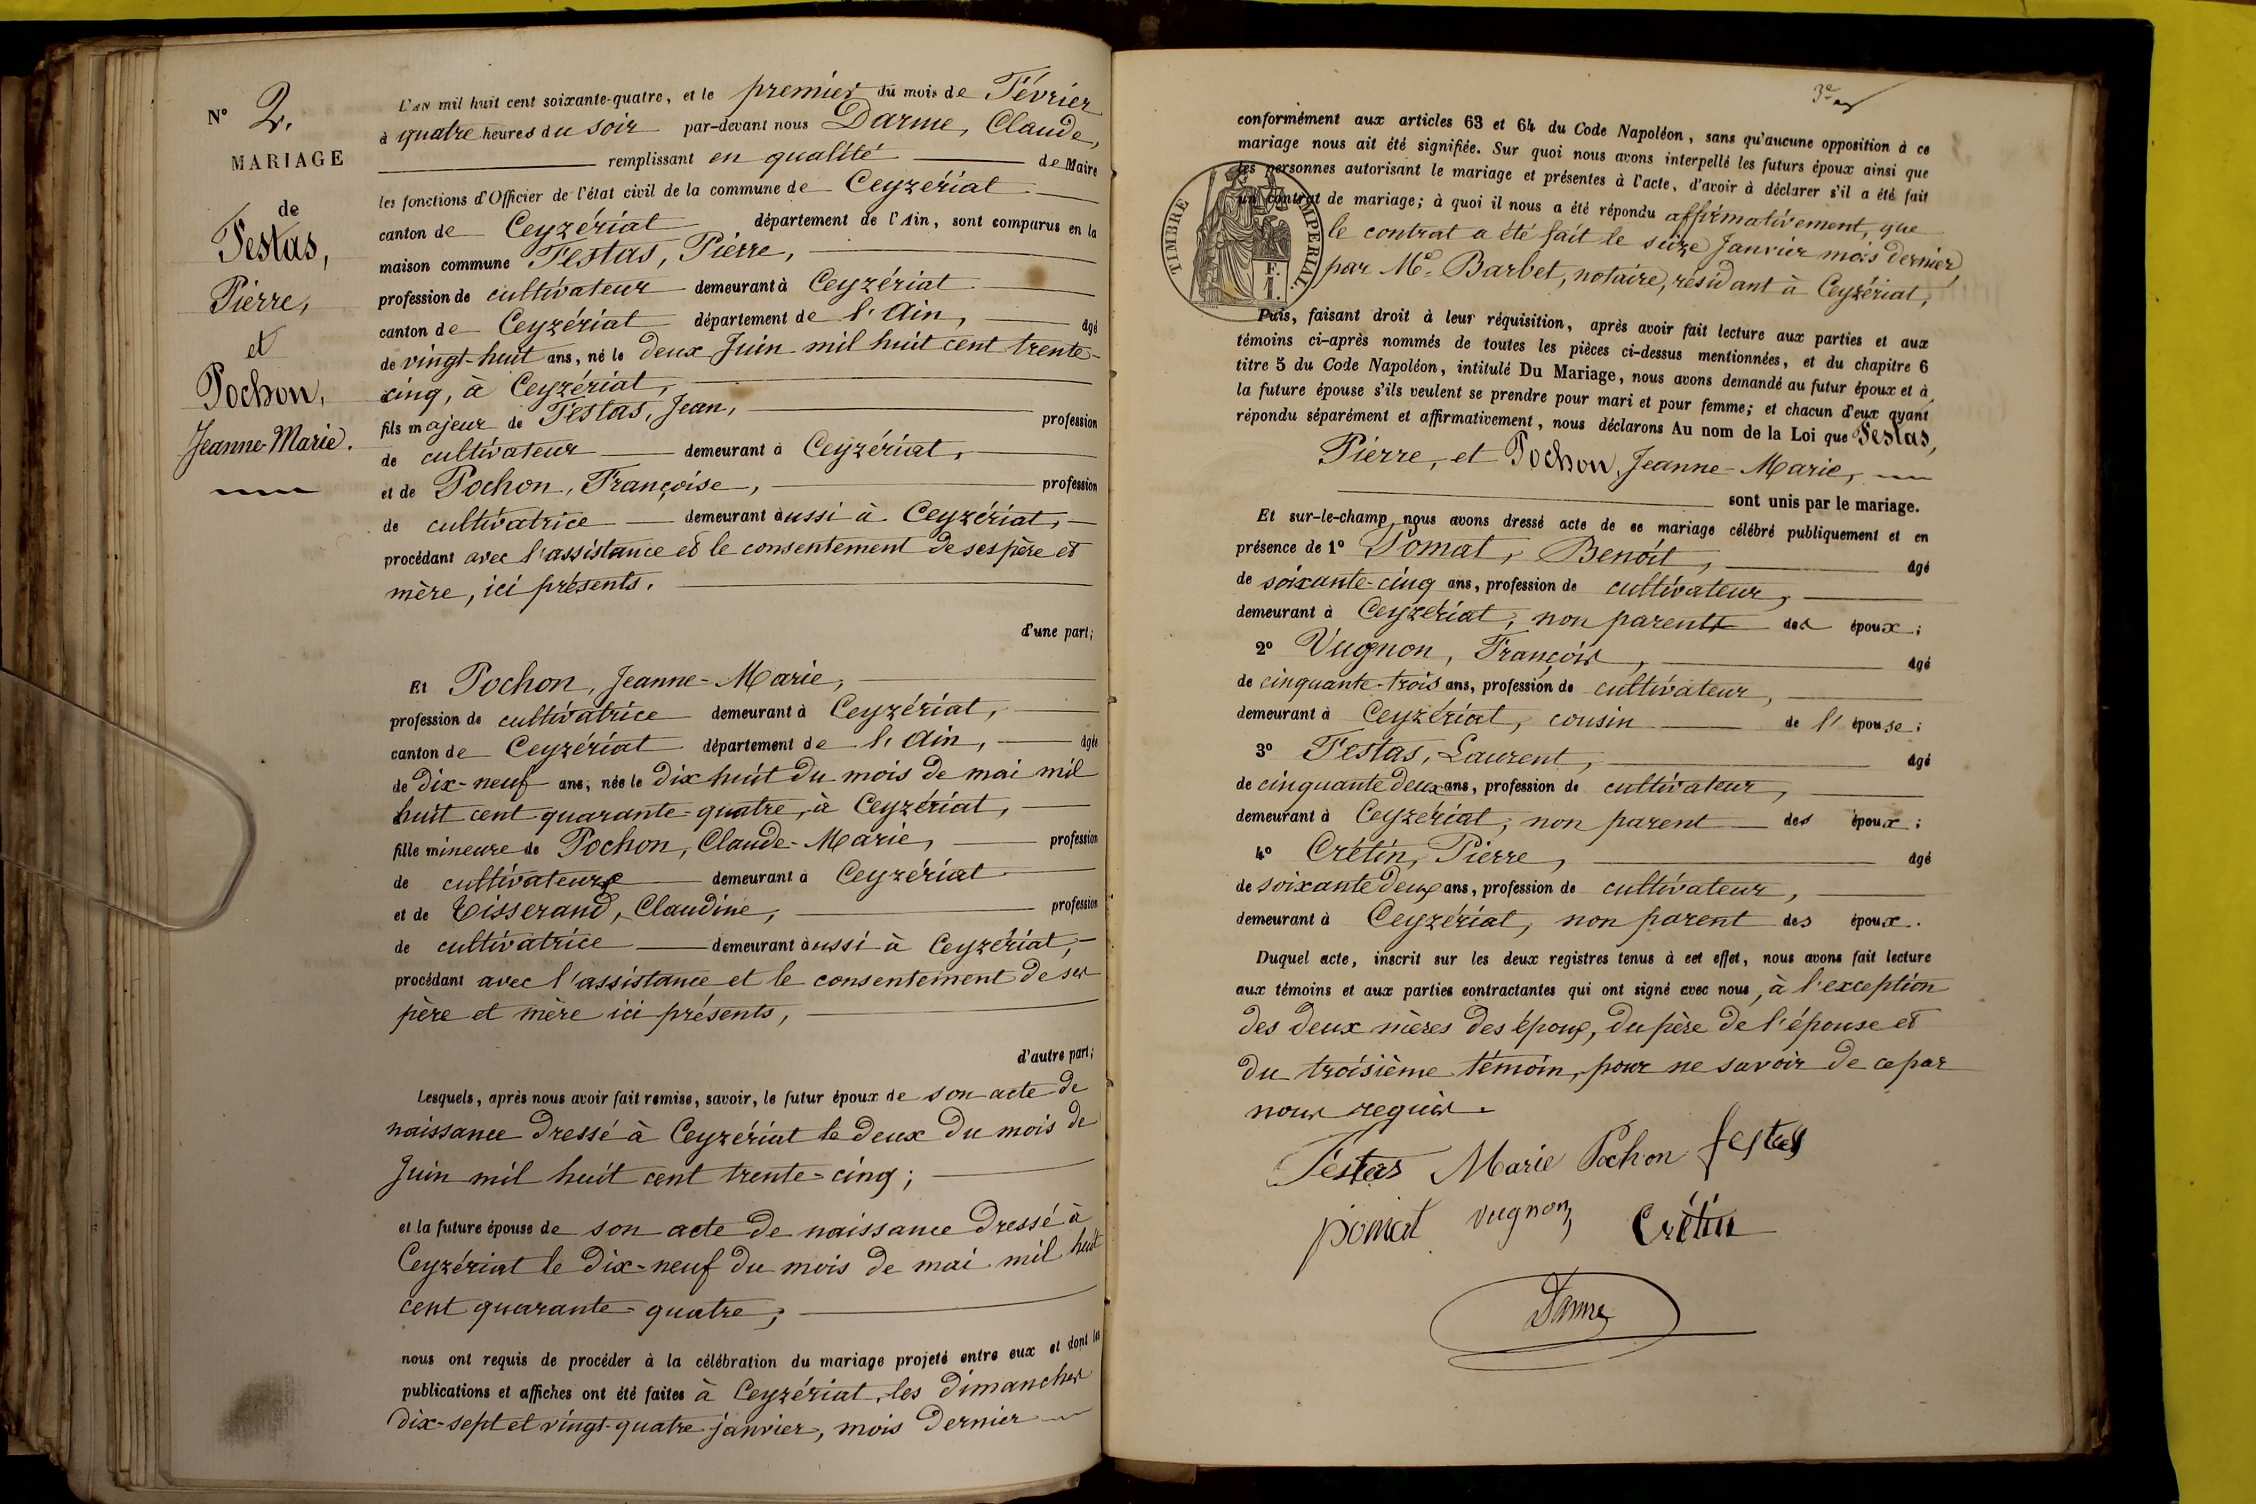 N° 2.
MARIAGE
de
Festas,
Pierre,
et
Pochon,
Jeanne-Marie.
L'AN mil huit cent soixante-quatre, et le premier du mois de Février
à quatre heures du soir par-devant nous Darme, Claude,
remplissant en qualité de Maire
les fonctions d'Officier de l'état civil de la commune de Ceyzériat
canton de Ceyzériat département de l'Ain, sont comparus en la
maison commune Festas, Pierre,
profession de cultivateur demeurant à Ceyzériat
canton de Ceyzériat département de l'Ain, âgé
de vingt-huit ans, né le deux Juin mil huit cent trente-
cinq, à Ceyzériat,
fils majeur de Festas, Jean, profession
de cultivateur demeurant à Ceyzériat,
et de Pochon, Françoise, profession
de cultivatrice demeurant aussi à Ceyzériat,
procédant avec l'assistance et le consentement de ses père et
mère, ici présents.
d'une part;
Et Pochon, Jeanne-Marie,
profession de cultivatrice demeurant à Ceyzériat,
canton de Ceyzériat département de l'Ain, âgée
de dix-neuf ans, née le dix huit du mois de mai mil
huit cent quarante-quatre, à Ceyzériat,
fille mineure de Pochon, Claude-Marie, profession
de cultivateur demeurant à Ceyzériat
et de Tisserand, Claudine, profession
de cultivatrice demeurant aussi à Ceyzériat,
procédant avec l'assistance et le consentement de ses
père et mère ici présents,
d'autre part;
Lesquels, après nous avoir fait remise, savoir, le futur époux de son acte de
naissance dressé à Ceyzériat le deux du mois de
Juin mil huit cent trente-cinq;
et la future épouse de son acte de naissance dressé à
Ceyzériat le dix-neuf du mois de mai mil huit
cent quarante-quatre,
nous ont requis de procéder à la célébration du mariage projeté entre eux et dont les
publications et affiches ont été faites à Ceyzériat, les dimanches
dix-sept et vingt-quatre janvier, mois dernier
conformément aux articles 63 et 64 du Code Napoléon, sans qu'aucune opposition à ce
mariage nous ait été signifiée. Sur quoi nous avons interpellé les futurs époux ainsi que
les personnes autorisant le mariage et présentes à l'acte, d'avoir à déclarer s'il a été fait
un contrat de mariage; à quoi il nous a été répondu affirmativement, que
le contrat a été fait le seize Janvier mois dernier
par Me. Barbet, notaire, résidant à Ceyzériat,
TIMBRE IMPERIAL.
Puis, faisant droit à leur réquisition, après avoir fait lecture aux parties et aux
témoins ci-après nommés de toutes les pièces ci-dessus mentionnées, et du chapitre 6
titre 5 du Code Napoléon, intitulé Du Mariage, nous avons demandé au futur époux et à
la future épouse s'ils veulent se prendre pour mari et pour femme; et chacun d'eux ayant
répondu séparément et affirmativement, nous déclarons Au nom de la Loi que Festas,
Pierre, et Pochon, Jeanne-Marie,
sont unis par le mariage.
Et sur-le-champ, nous avons dressé acte de ce mariage célébré publiquement et en
présence de 1° Pomat, Benoit, âgé
de soixante-cinq ans, profession de cultivateur,
demeurant à Ceyzériat, non parent des époux;
2° Vugnon, François, âgé
de cinquante-trois ans, profession de cultivateur,
demeurant à Ceyzériat, cousin de l'épouse;
3° Festas, Laurent, âgé
de cinquante deux ans, profession de cultivateur,
demeurant à Ceyzériat, non parent des époux;
4° Crétin, Pierre, âgé
de soixante deux ans, profession de cultivateur,
demeurant à Ceyzériat, non parent des époux.
Duquel acte, inscrit sur les deux registres tenus à cet effet, nous avons fait lecture
aux témoins et aux parties contractantes qui ont signé avec nous, à l'exception
des deux mères des époux, du père de l'épouse et
du troisième témoin, pour ne savoir de ce par
nous requis.
Festas Marie Pochon festas
pomat vugnon Crétin
Darme